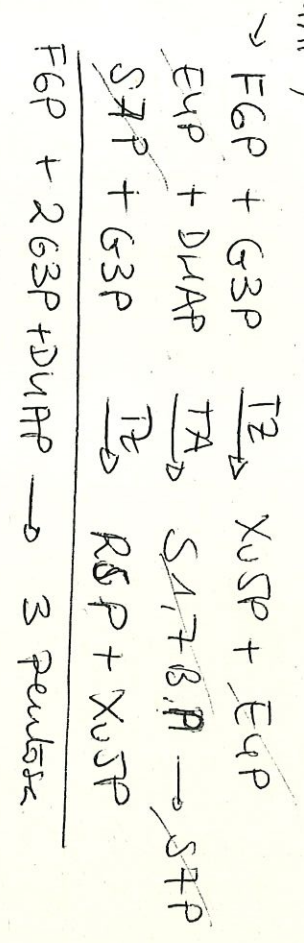 → F6P + G3P TZ→ Xu5P + E4P
E4P + DHAP TA→ S1,7B.P → S7P
S7P + G3P TZ→ R5P + Xu5P
F6P + 2G3P + DHAP → 3 pentose